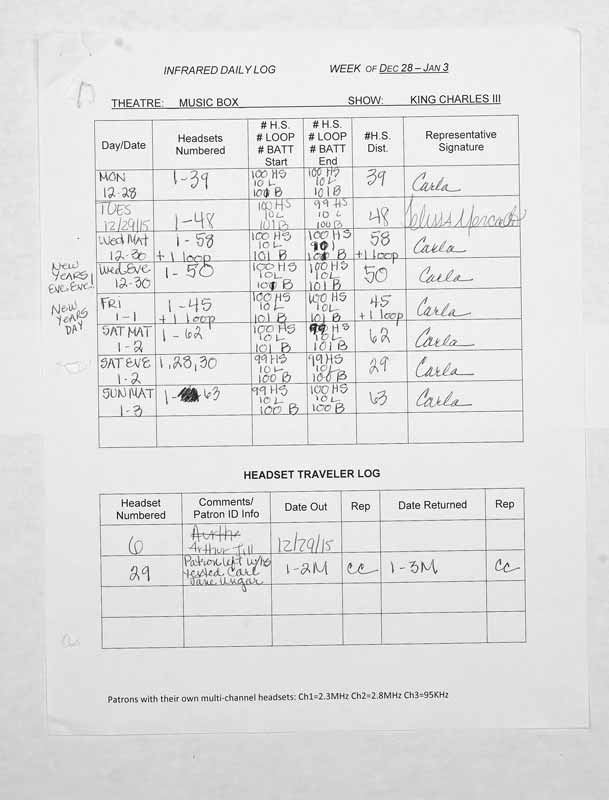 INFRARED DAILY LOG WEEK OF DEC 28 – JAN 3
THEATRE: MUSIC BOX SHOW: KING CHARLES III
Day/Date Headsets Numbered # H.S. # LOOP # BATT Start # H.S. # LOOP # BATT End #H.S. Dist. Representative Signature
MON 12-28 1-39 100 HS 10 L 101 B 100 HS 10 L 101 B 39 Carla
TUES 12/29/15 1-48 100 HS 10 L 101 B 99 HS 10 L 100 B 48
Wed MAT 12-30 1-58 +1 loop 100 HS 10 L 101 B 100 HS 101 B 58 +1 loop Carla
NEW YEARS EVE EVE! Wed Eve 12-30 1-50 100 HS 10 L 101 B 100 HS 10 L 101 B 50 Carla
NEW YEARS DAY FRI 1-1 1-45 +1 loop 100 HS 10 L 101 B 100 HS 10 L 101 B 45 +1 loop Carla
SAT MAT 1-2 1-62 100 HS 10 L 101 B 99 HS 10 L 101 B 62 Carla
SAT EVE 1-2 1,28,30 99 HS 10 L 100 B 99 HS 10 L 100 B 29 Carla
SUN MAT 1-3 1-63 99 HS 10 L 100 B 100 HS 10 L 100 B 63 Carla
HEADSET TRAVELER LOG
Headset Numbered Comments/ Patron ID Info Date Out Rep Date Returned Rep
6 Arthur Jill 12/29/15
29 Patron left w/hs Jane Ungar 1-2M CC 1-3M CC
Patrons with their own multi-channel headsets: Ch1=2.3MHz Ch2=2.8MHz Ch3=95KHz